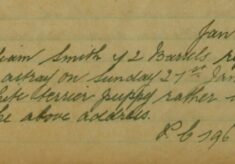 Jan
liam Smith y 2 Barrels
astray on Sunday 21st Jan
ite terrier puppy rather
he above address.
P.C 196